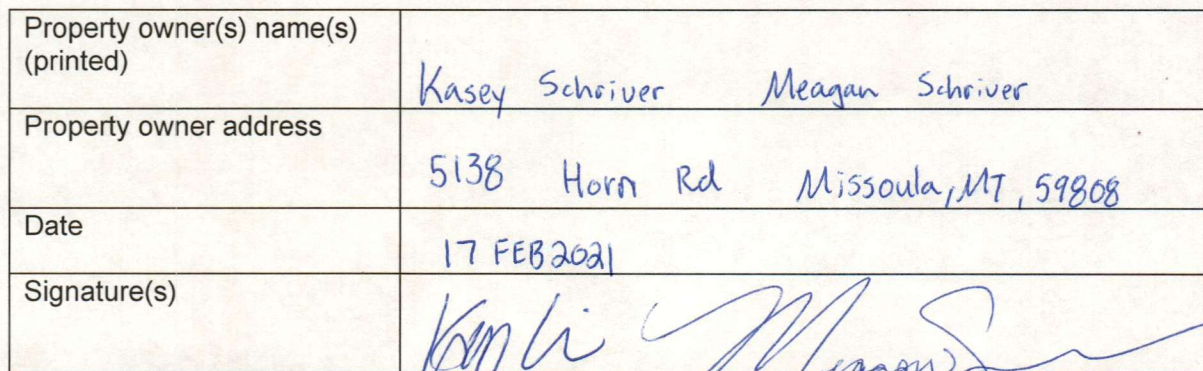 Property owner(s) name(s)
(printed)
Kasey Schriver Meagan Schriver
Property owner address
5138 Horn Rd Missoula, MT, 59808
Date
17 FEB 2021
Signature(s)
Meagan S